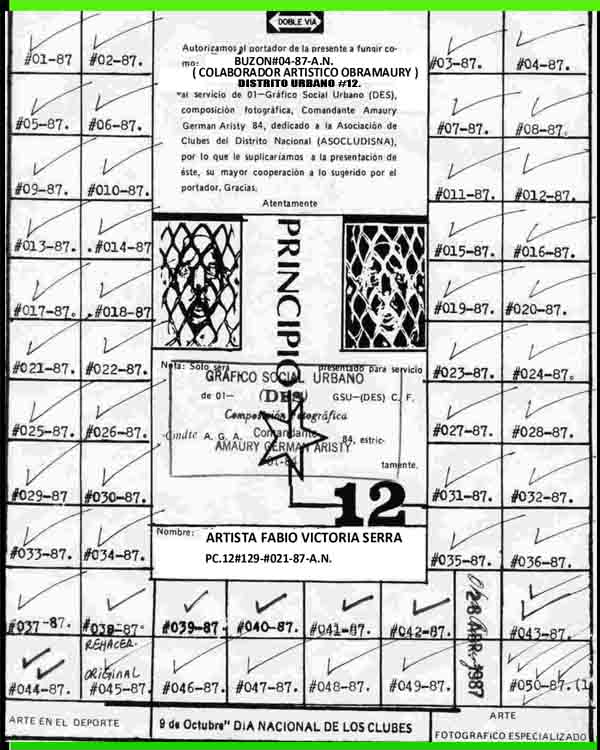 DOBLE VIA
Autorizamos al portador de la presente a fungir co-
mo: BUZON#04-87-A.N.
( COLABORADOR ARTISTICO OBRAMAURY )
DISTRITO URBANO #12.
al servicio de 01—Gráfico Social Urbano (DES),
composición fotográfica, Comandante Amaury
German Aristy 84, dedicado a la Asociación de
Clubes del Distrito Nacional (ASOCLUDISNA),
por lo que le suplicaríamos a la presentación de
éste, su mayor cooperación a lo sugerido por el
portador, Gracias.
Atentamente
#01-87 #02-87. #03-87. #04-87.
#05-87. #06-87. #07-87. #08-87.
#09-87. #010-87. #011-87. #012-87.
#013-87. #014-87 #015-87. #016-87.
#017-87. #018-87 #019-87. #020-87.
#021-87. #022-87. #023-87. #024-87.
#025-87. #026-87. #027-87. #028-87.
#029-87 #030-87. #031-87. #032-87.
#033-87. #034-87. #035-87. #036-87.
PRINCIPIO
Nota: Sólo será presentado para servicio
GRÁFICO SOCIAL URBANO
de 01— (DES) GSU—(DES) C. F.
Composición Fotográfica
Cmdte A. G. A. Comandante 84, estric-
AMAURY GERMAN ARISTY
01-84 tamente.
12
Nombre: ARTISTA FABIO VICTORIA SERRA
PC.12#129-#021-87-A.N.
#037-87. #038-87. #039-87. #040-87. #041-87. #042-87. #043-87.
28 ABR. 1987
REHACER.
ORIGINAL
#044-87. #045-87. #046-87. #047-87. #048-87. #049-87. #050-87.(1
ARTE EN EL DEPORTE
9 de Octubre" DIA NACIONAL DE LOS CLUBES
ARTE
FOTOGRAFICO ESPECIALIZADO